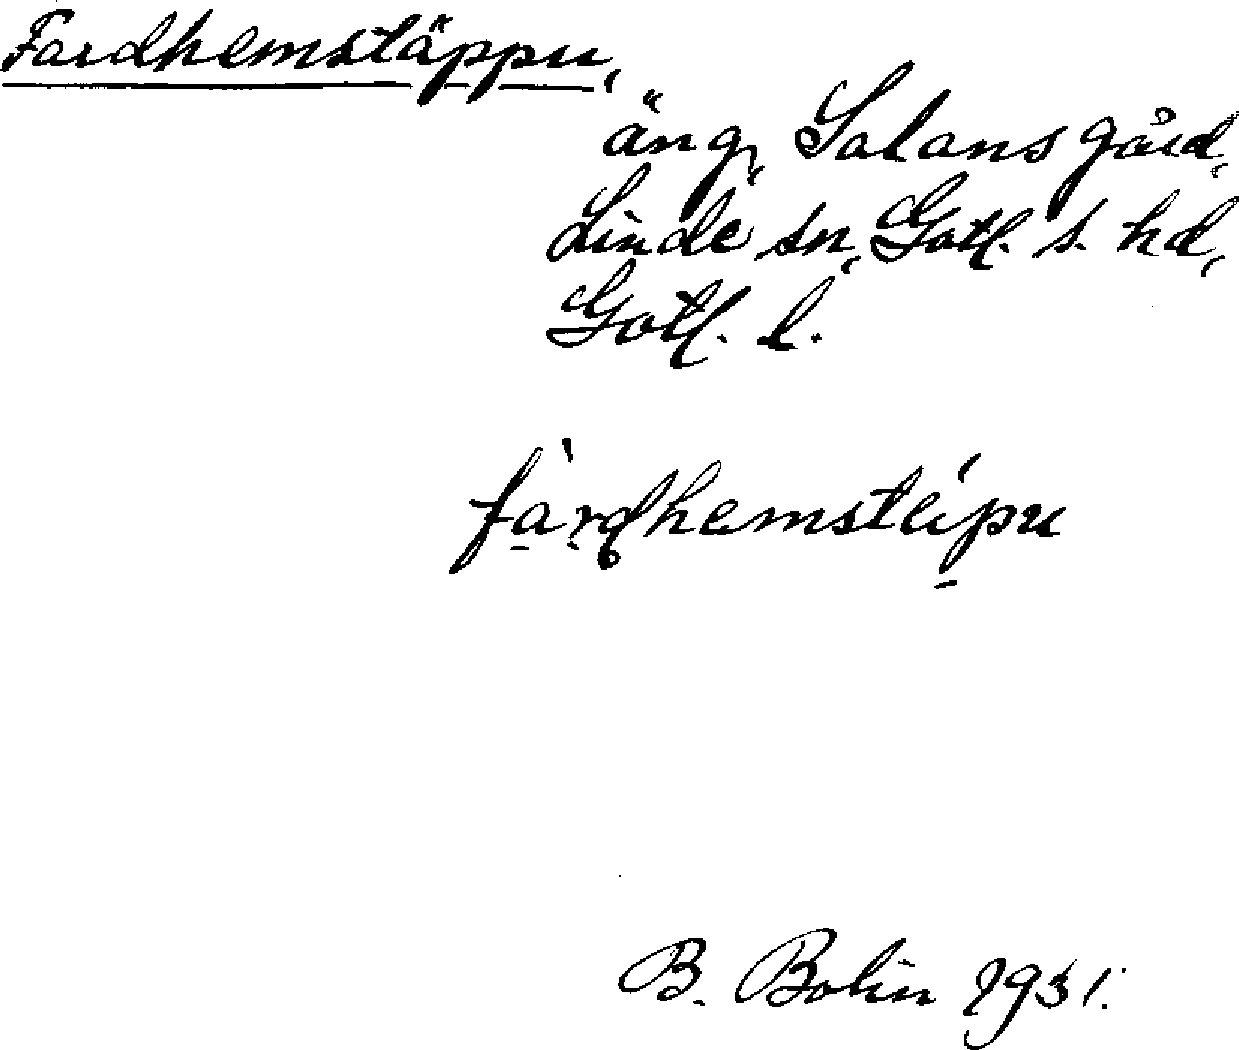 Fardhemstäppu,
äng, Salans gård,
Linde sn, Gotl. s. hd,
Gotl. l.
fàrdhemstéipu
B. Bolin 1931.